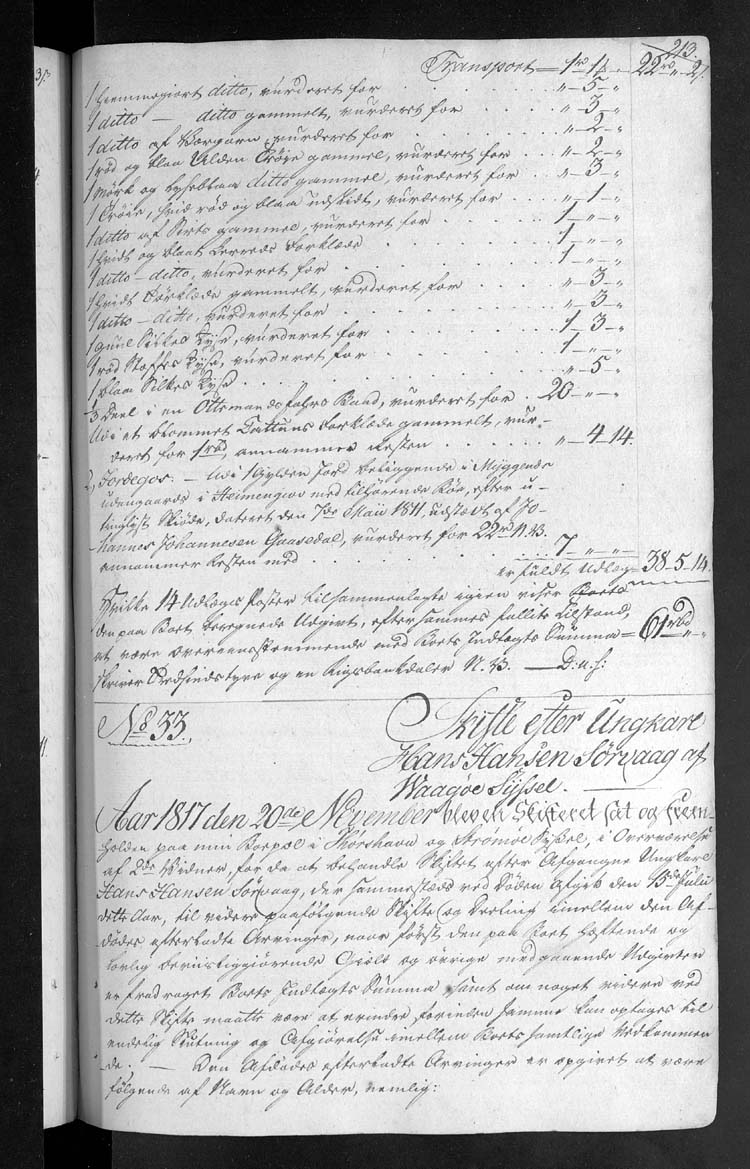 213.
Transport = 1 rd 1 β „ 22 rd „ 2 β.
1 hiemmegiort ditto, vurderet for . . . . „ - 5 - „
1 ditto — ditto gammelt, vurderet for . . . . „ - 3 - „
1 ditto af Borgarn, vurderet for . . . . „ - 2 - „
1 rød og blaa Ulden Trøie gammel, vurderet for . . „ - 2 - „
1 mørk og lyseblaa ditto gammel, vurderet for . . . „ - 3 - „
1 Trøie, hvid rød og blaa udskidt, vurderet for . . . „ - 1 - „
1 ditto af Sirts gammel, vurderet for . . . . 1 - „ - „
1 hvidt og blaat Lerreds Forklæde . . . . 1 - „ - „
1 ditto - ditto, vurderet for . . . . 1 - „ - „
1 hvidt Forklæde gammelt, vurderet for . . . . „ - 3 - „
1 ditto - ditto, vurderet for . . . . „ - 3 - „
1 guul Silkes Kyse, vurderet for . . . . 1 - 3 - „
1 rød Stoffes Kyse, vurderet for . . . . 1 - „ - „
1 blaa Silkes Kyse . . . . „ - 5 - „
Deel i en Ottemandsfahrs Baad, vurderet for . 20 - „ - „
Udi et blommet Cattuns Forklæde gammelt, vur-
deret for 1 rbd, annammer Resten . . . . „ - 4 - 14.
2, Jordegos. — Udi 1 Gylden Jord beliggende i Myggenæs
udengaards i Heimengiov med tilhørende Røe, efter u-
tinglyst Skiøde, dateret den 7de Maii 1811, udstædt af Jo-
hannes Johannesen Gaasedal, vurderet for 22 rd N.V.
annammer Resten med . . . . 7 - „ - „
er fuldt Udlæg = 38 - 5 - 14
Hvilke 14 Udlægs Poster tilsammenlagte igien viser Boets
den paa Boet beregnede Udgivt, efter sammes fallits Tilstand,
at være overeensstemmende med Boets Indtægts Summa = 61 rbd „ „
skriver Tredsindstyve og en Rigsbankdaler N.V. — D:u:s:
No 33.
Skifte efter Ungkarl
Hans Hansen Sørvaag af
Waagøe Syssel.
Aar 1817 den 20de November blev en Skifteret sat og frem-
holden paa min Bopæl i Thorshavn og Strømøe Syssel, i Overværelse
af 2de Vidner, for da at behandle Skiftet efter Afgangne Ungkarl
Hans Hansen Sørvaag, der sammestæds ved Døden afgik den 15de Julii
dette Aar, til videre paafølgende Skifte og Deeling imellem den Af-
dødes efterladte Arvinger, naar først den paa Boet heftende og
lovlig beviisliggiørende Giæld og øvrige medgaaende Udgivter
er fradraget Boets Indtægts Summa, samt om noget videre ved
dette Skifte maatte være at erindre forinden samme kan optages til
endelig Slutning og Afgiørelse imellem Boets samtlige Vedkommen-
de; — Den Afdødes efterladte Arvinger er opgivet at være
følgende af Navn og Alder, nemlig: